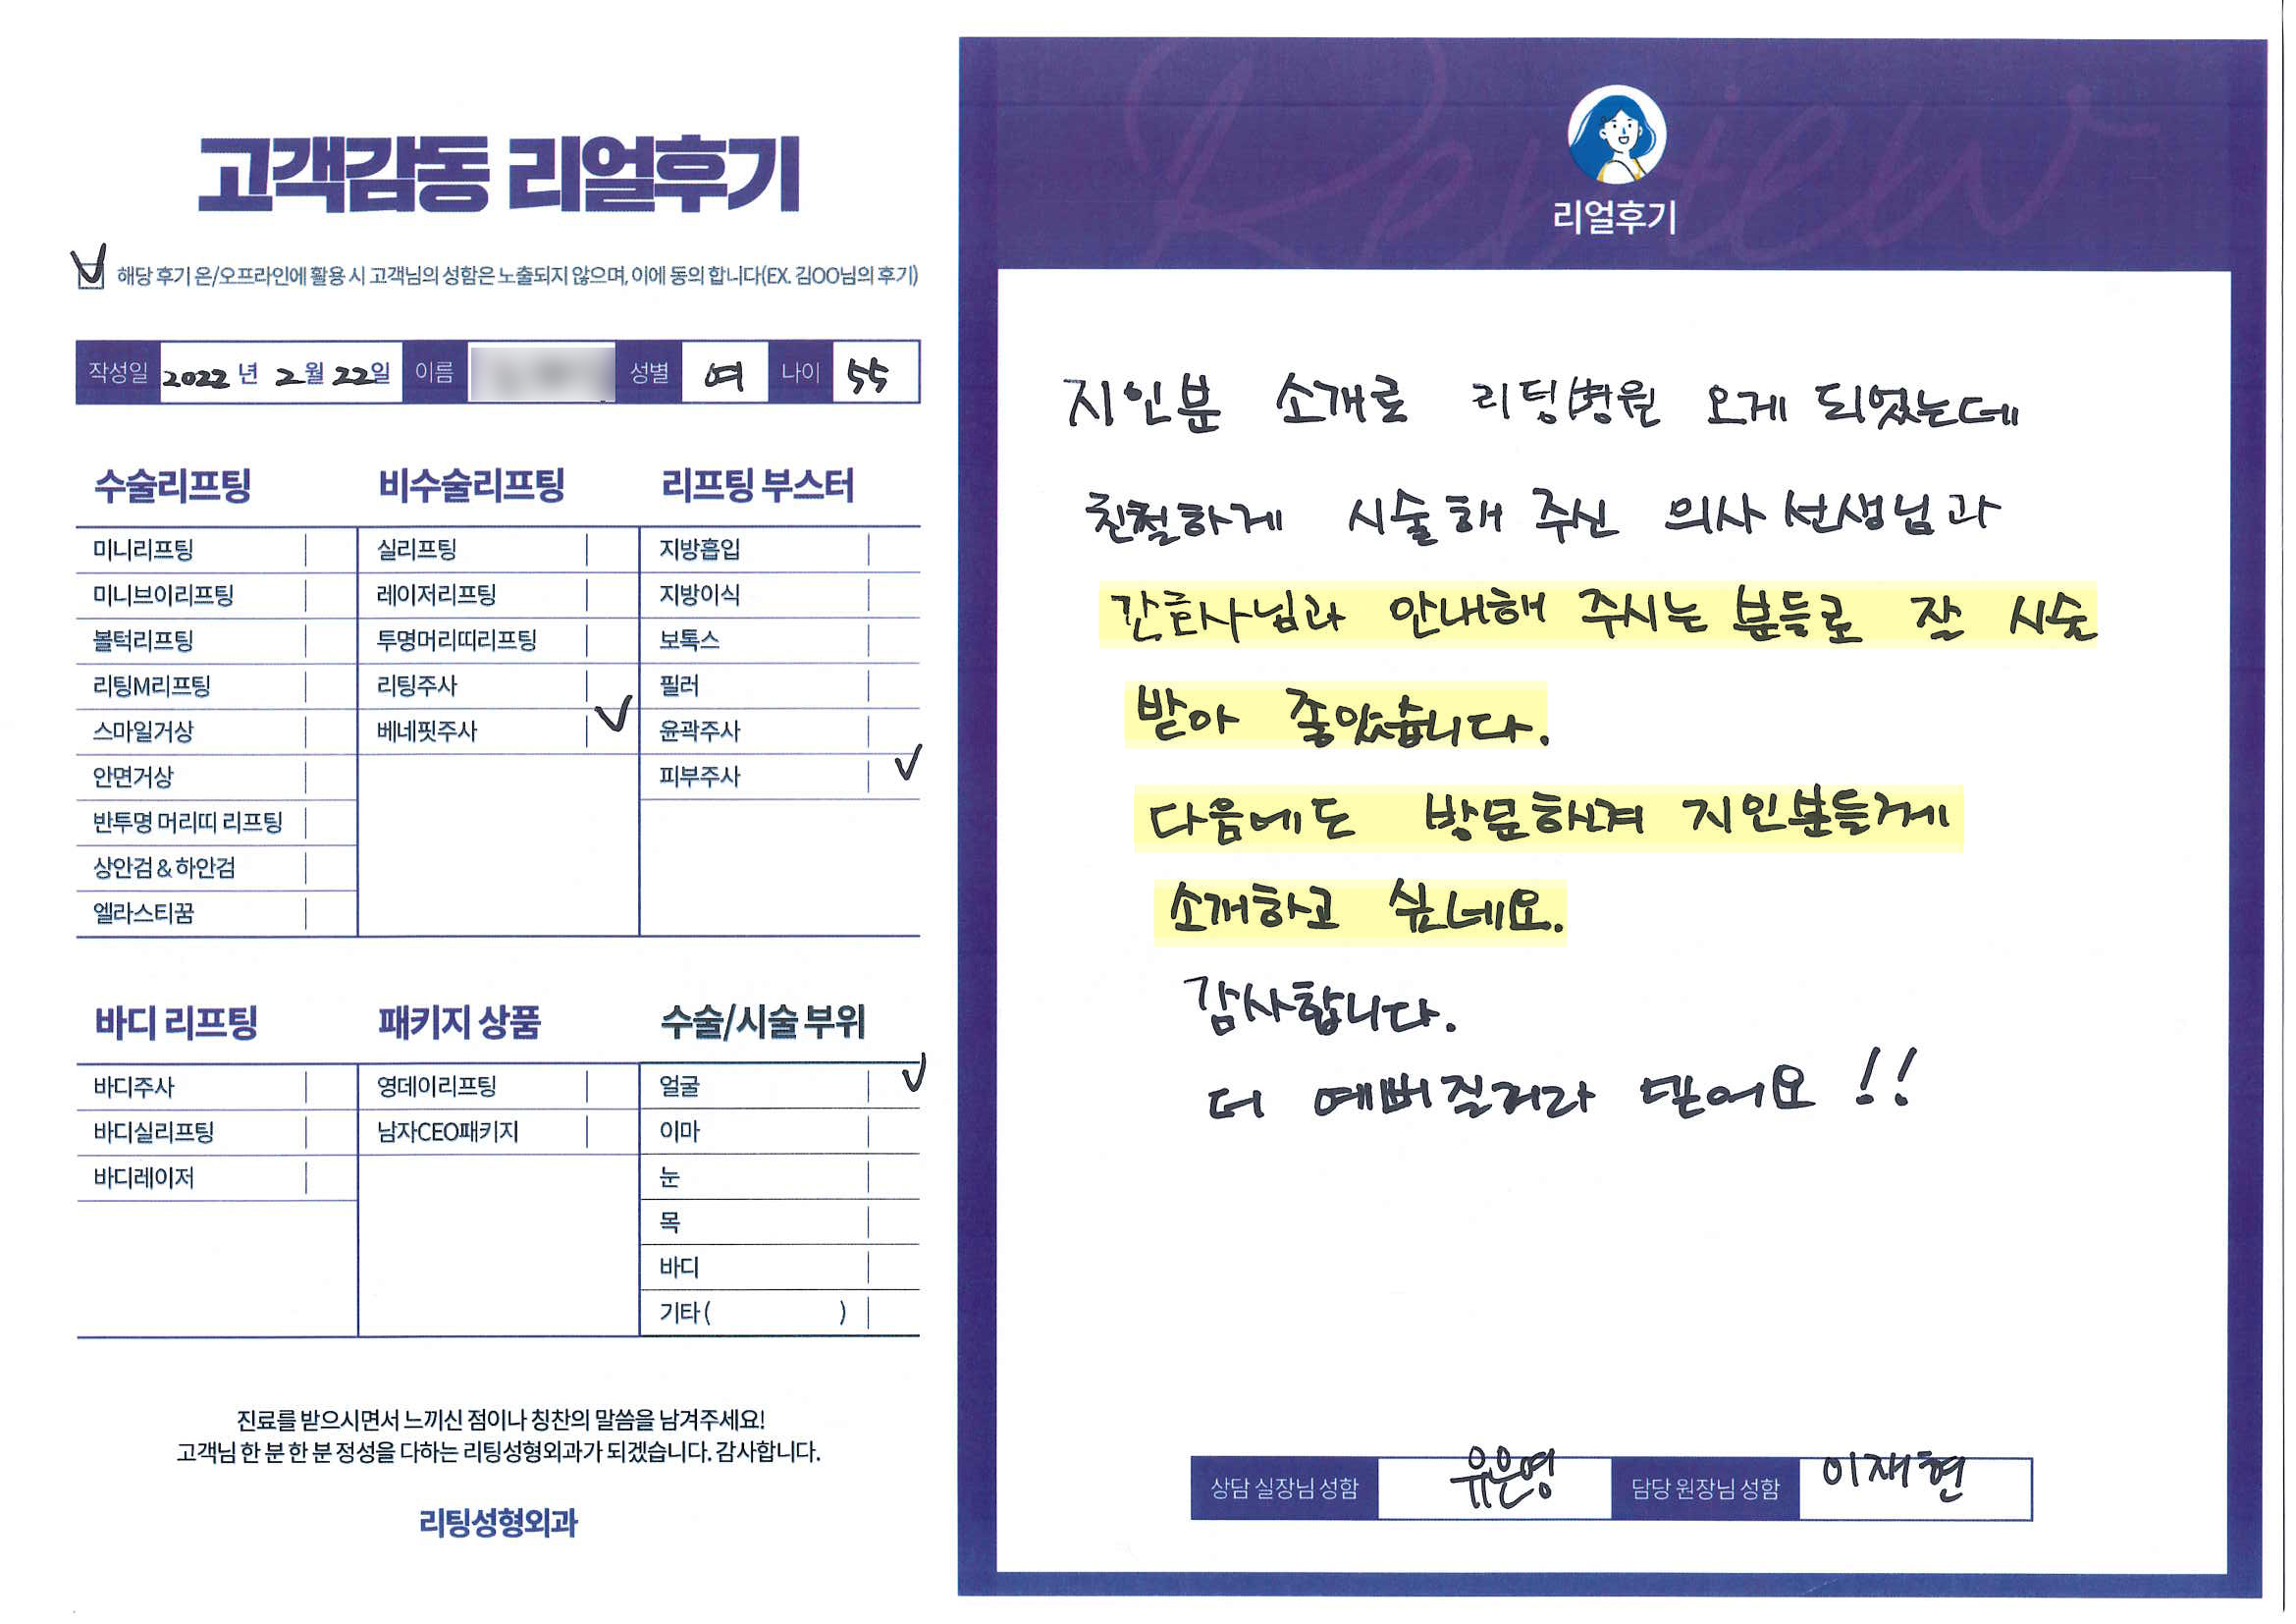 고객감동 리얼후기
해당 후기 은/오프라인에 활용 시 고객님의 성함은 노출되지 않으며, 이에 동의 합니다(EX. 김OO님의 후기)
작성일 2022 년 2월 22일 이름 성별 여 나이 55
수술리프팅
미니리프팅
미니브이리프팅
볼턱리프팅
리팅M리프팅
스마일거상
안면거상
반투명 머리띠 리프팅
상안검 & 하안검
엘라스티꿈
비수술리프팅
실리프팅
레이저리프팅
투명머리띠리프팅
리팅주사
베네핏주사
리프팅 부스터
지방흡입
지방이식
보톡스
필러
윤곽주사
피부주사
바디 리프팅
바디주사
바디실리프팅
바디레이저
패키지 상품
영데이리프팅
남자CEO패키지
수술/시술 부위
얼굴
이마
눈
목
바디
기타 ( )
진료를 받으시면서 느끼신 점이나 칭찬의 말씀을 남겨주세요!
고객님 한 분 한 분 정성을 다하는 리팅성형외과가 되겠습니다. 감사합니다.
리팅성형외과
Review
리얼후기
지인분 소개로 리팅병원 오게 되었는데
친절하게 시술해 주신 의사선생님과
간호사님과 안내해 주시는 분들로 잘 시술
받아 좋았습니다.
다음에도 방문하며 지인분들게
소개하고 싶네요.
감사합니다.
더 예뻐질거라 믿어요 !!
상담 실장님 성함 유은영 담당 원장님 성함 이재현